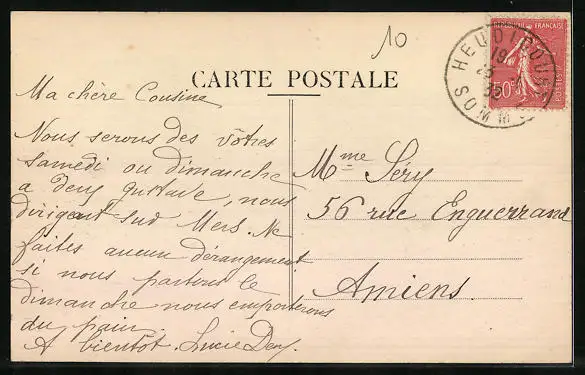 10
CARTE POSTALE
HEUDICOURT
SOMME
19
23
35
50c
FRANÇAISE
POSTES
Ma chère Cousine
Nous serons des vôtres
samedi ou dimanche
a deux gustave, nous
dirigeant sud Mers. Ne
faites aucun dérangement
si nous partons le
dimanche nous emporterons
du pain
A bientôt. Lucie
Mme Séry
56 rue Enguerrand
Amiens.